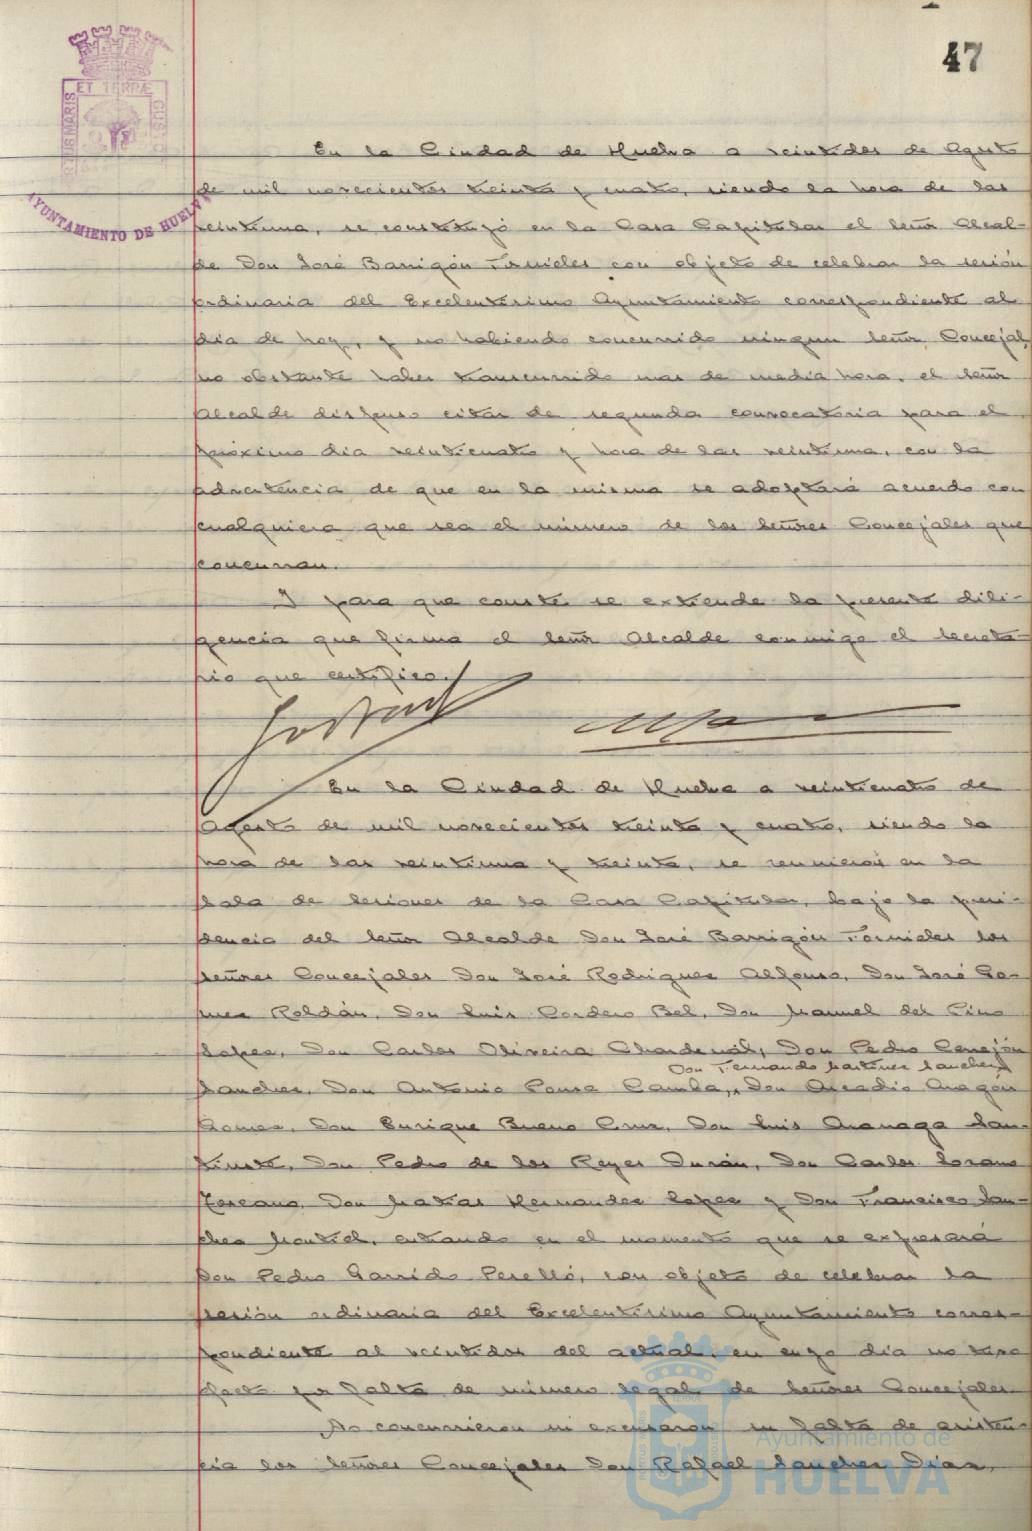 47
PORTUS MARIS ET TERRÆ CUSTODIA
AYUNTAMIENTO DE HUELVA
En la Ciudad de Huelva a veintidos de Agosto
de mil novecientos treinta y cuatro, siendo la hora de las
veintiuna, se constituyó en la Casa Capitular el Señor Alcal-
de Don José Barrigón Fornieles con objeto de celebrar la sesión
ordinaria del Excelentísimo Ayuntamiento correspondiente al
dia de hoy, y no habiendo concurrido ningun Señor Concejal,
no obstante haber transcurrido mas de media hora, el Señor
Alcalde dispuso citar de segunda convocatoria para el
próximo dia veinticuatro y hora de las veintiuna, con la
advertencia de que en la misma se adoptará acuerdo con
cualquiera que sea el número de los Señores Concejales que
concurran.
Y para que conste se extiende la presente dili-
gencia que firma el Señor Alcalde conmigo el Secreta-
rio que certifico.
En la Ciudad de Huelva a veinticuatro de
Agosto de mil novecientos treinta y cuatro, siendo la
hora de las veintiuna y treinta, se reunieron en la
Sala de Sesiones de la Casa Capitular, bajo la presi-
dencia del Señor Alcalde Don José Barrigón Fornieles los
Señores Concejales Don José Rodriguez Alfonso, Don José Go-
mez Roldán, Don Luis Cordero Bel, Don Manuel del Pino
Lopez, Don Carlos Oliveira Chardenál, Don Pedro Cerrejón
Don Fernando Martinez Sanchez
Sanchez, Don Antonio Ponce Camba, Don Arcadio Aragón
Gomez, Don Enrique Bueno Cruz, Don Luis Aranaga San-
tiuste, Don Pedro de los Reyes Durán, Don Carlos Lozano
Toscano, Don Matias Hernandez Lopez y Don Francisco San-
chez Montiel, entrando en el momento que se expresará
Don Pedro Garrido Perelló, con objeto de celebrar la
sesión ordinaria del Excelentísimo Ayuntamiento corres-
pondiente al veintidos del actual, en cuyo dia no tuvo
efecto por falta de número legal de Señores Concejales.
No concurrieron ni excusaron su falta de asisten-
cia los Señores Concejales Don Rafael Sanchez Diaz,
Ayuntamiento de
HUELVA